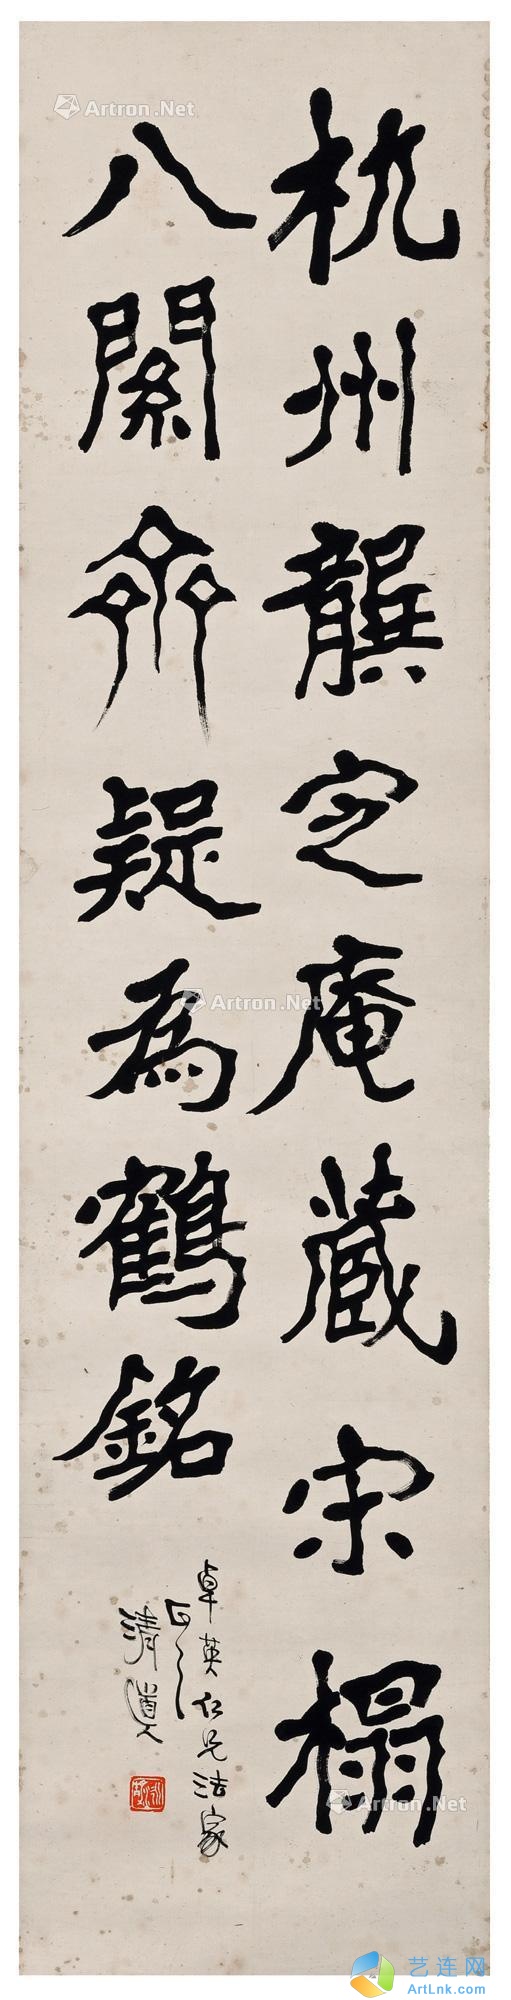 杭州龔定庵藏宋榻
八關齊疑為鶴銘
卓英仁兄法家
正之
清道人
Artron.Net
Artron.Net
Artron.Net
Artron.Net
艺连网
ArtLnk.com